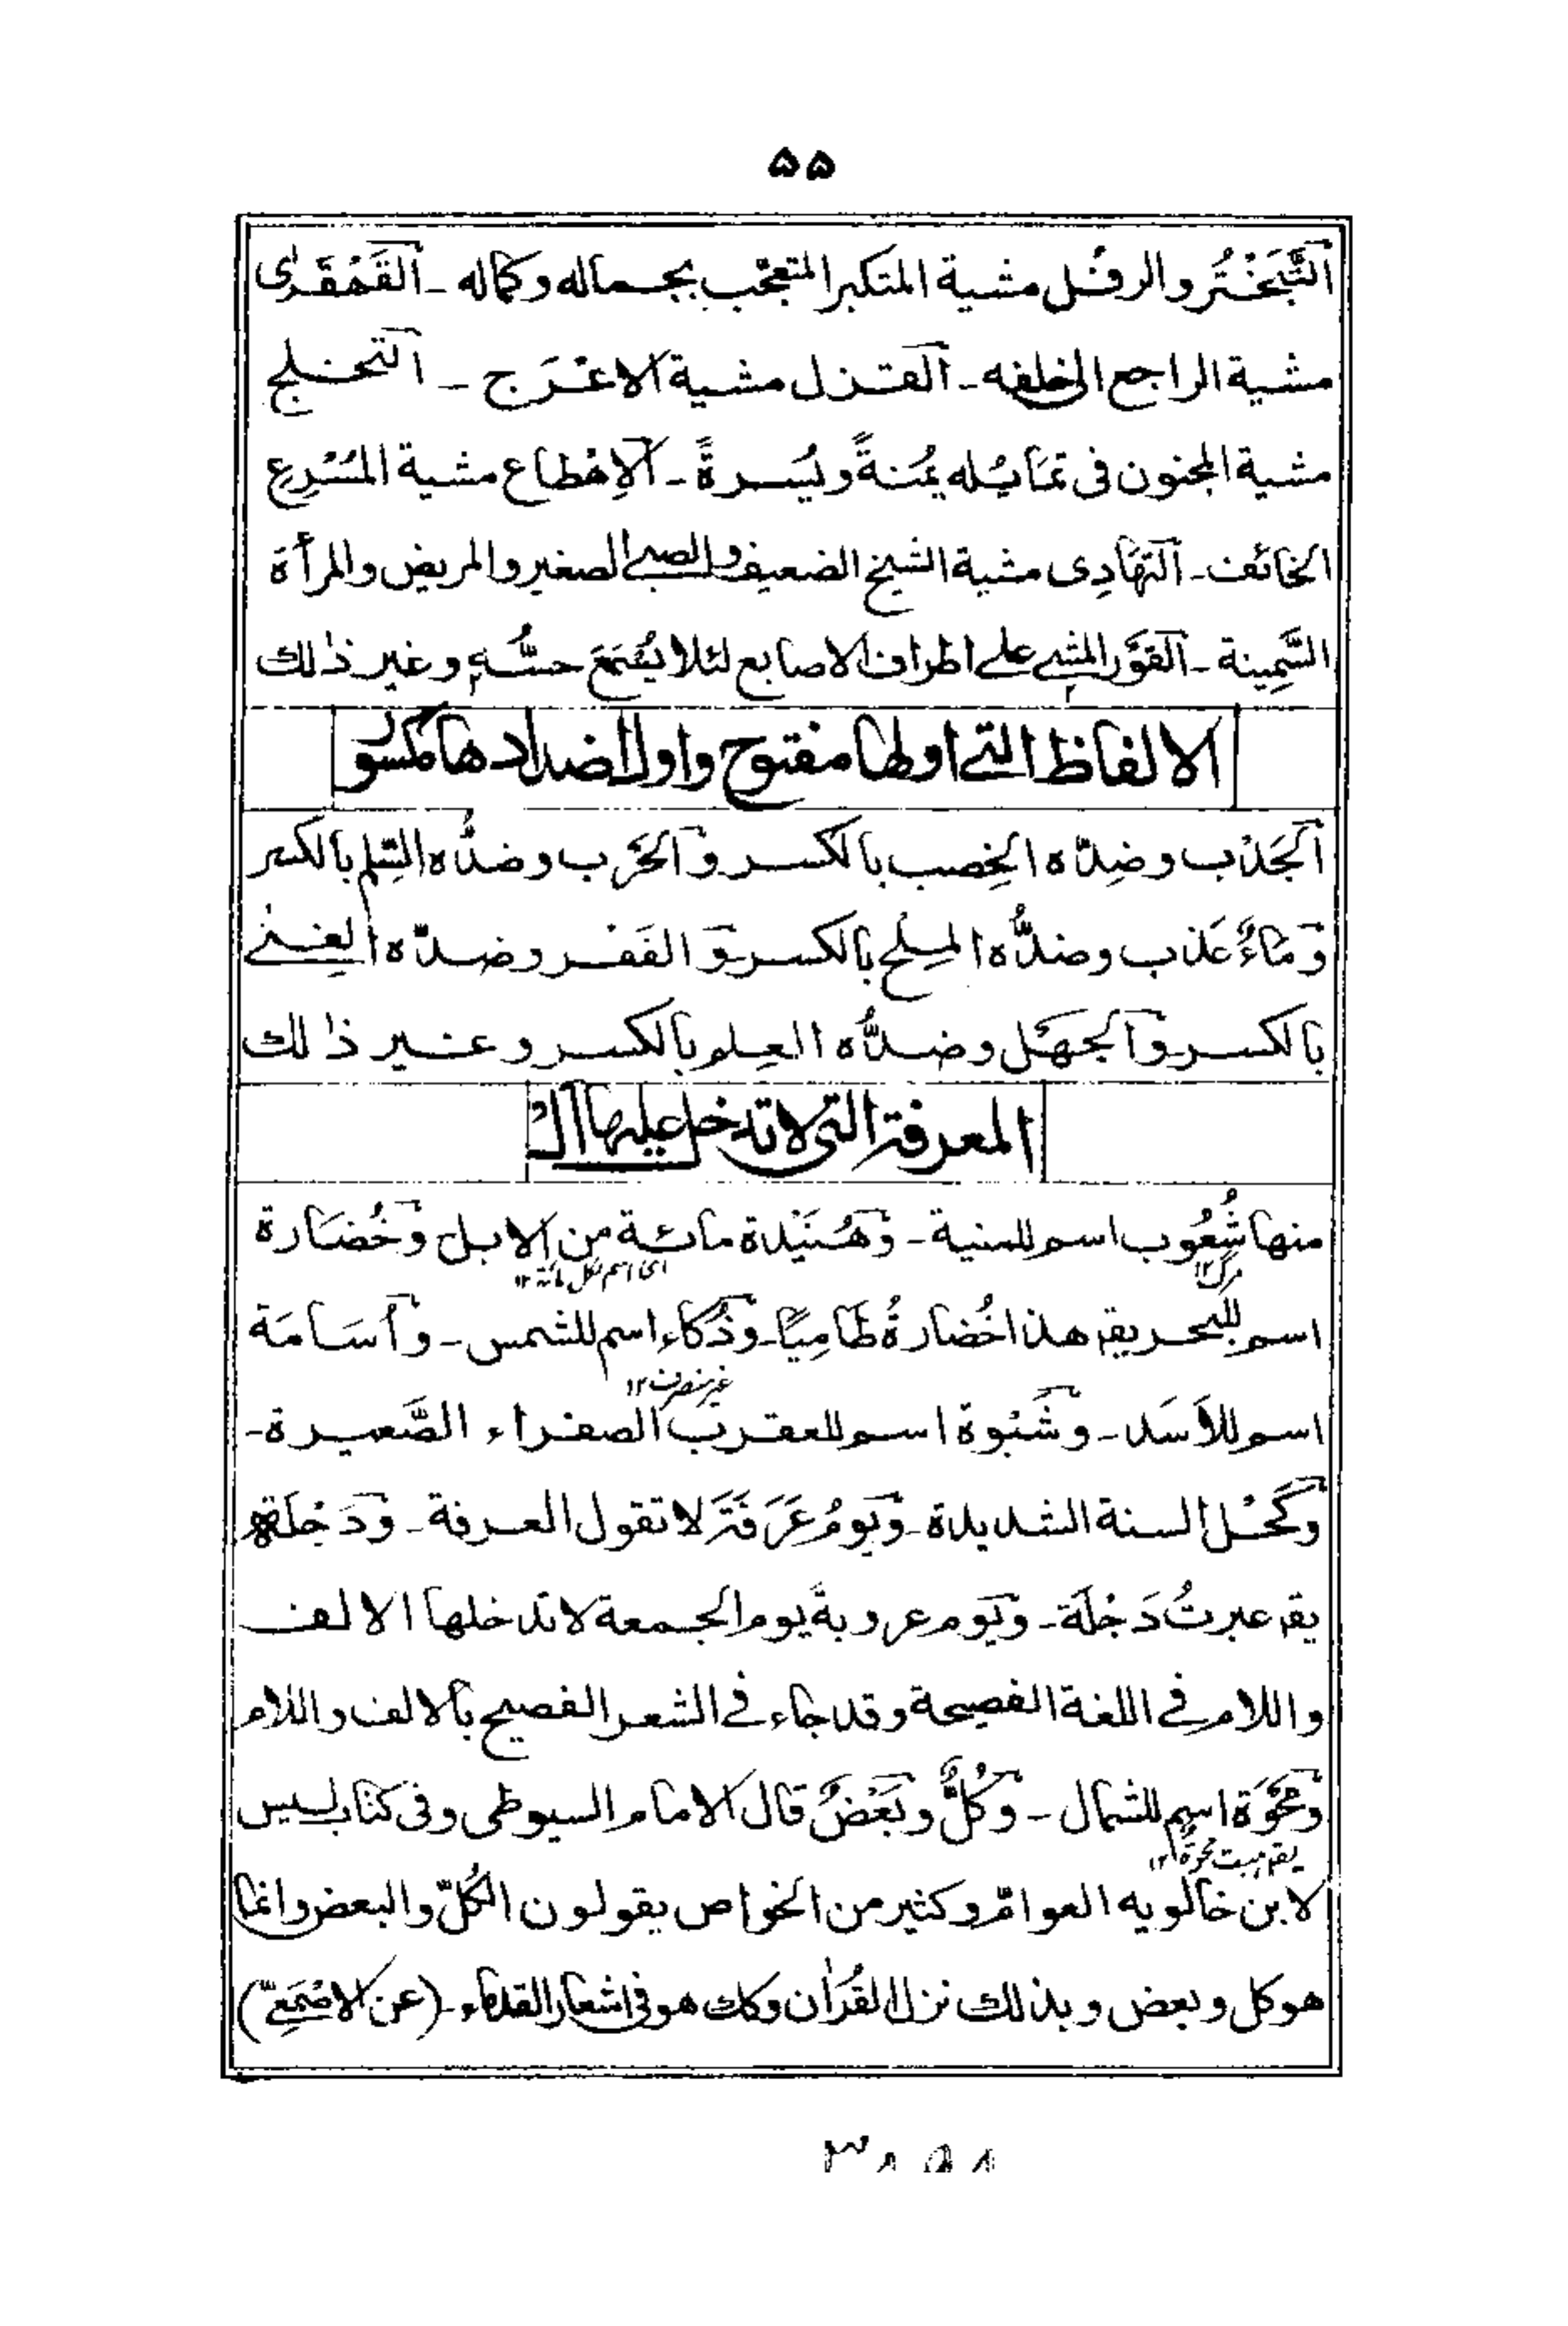 ۵۵
التَّبَخْتُر والرفُل مشية المتكبر المتعجّب بجماله وكماله ـ القَهْقَرٰى
مشية الراجع الى خلفه ـ القزل مشية الاعْرَج ـ التخلج
مشية المجنون فى تمَايُله يُمْنةً ويُسرةً ـ الاِهْطاع مشية المُسْرِع
الخائف ـ التهَادِى مشية الشيخ الضعيف والصبي الصغير والمريض والمرأة
السَّمِينة ـ القوَّر المشي على اطراف الاصابع لئلا يُسْمَعَ حسُّهِ وغير ذلك
الالفاظ التي اولها مفتوح واول اضدادها مكسور
الجَدْب وضِدّه الخِصب بالكسر والحَرْب وضدُّه السِّلم بالكسر
ومَاءٌ عَذب وضدُّه المِلح بالكسر والفَقْر وضدّه الغِنٰي
بالكسر والجهَل وضدُّه العِلم بالكسر وغير ذلك
المعرفة التى لا تدخل عليها ال
منها شُعُوب اسم للمنية ـ وهُنَيْدة مائة من الابل وخُضَارة
مرگ ۱۲
اى اسم لكل مائة ۱۲
اسم للبَحر يقہ هذا خُضارةُ طَامِيًا ـ وذُكاء اسم للشمس ـ وأُسَامَة
غير منصرف ۱۲
اسم للاَسَد ـ وشَبْوة اسم للعقرب الصفراء الصَّغيرة ـ
وكَحْل السنة الشديدة ـ ويَومُ عَرَفَةَ لا تقول العرفة ـ ودَجْلَة
يقہ عبرتُ دَجْلَة ـ ويَوم عروبةَ يوم الجمعة لا تدخلها الالف
واللام فى اللغة الفصيحة وقد جاء فى الشعر الفصيح بالالف واللام
ومَحْوَة اسم للشمال ـ وكُلٌّ وبَعْضٌ قال الامام السيوطى وفى كتاب ليس
يقہ هبت محوة ۱۲
لابن خالويه العوامّ وكثير من الخواص يقولون الكُلّ والبعض وانما
هو كل وبعض وبذلك نزل القُرْاٰن وكك هو فى اشعار القدماء ـ (عن الاصْمَعِيّ)